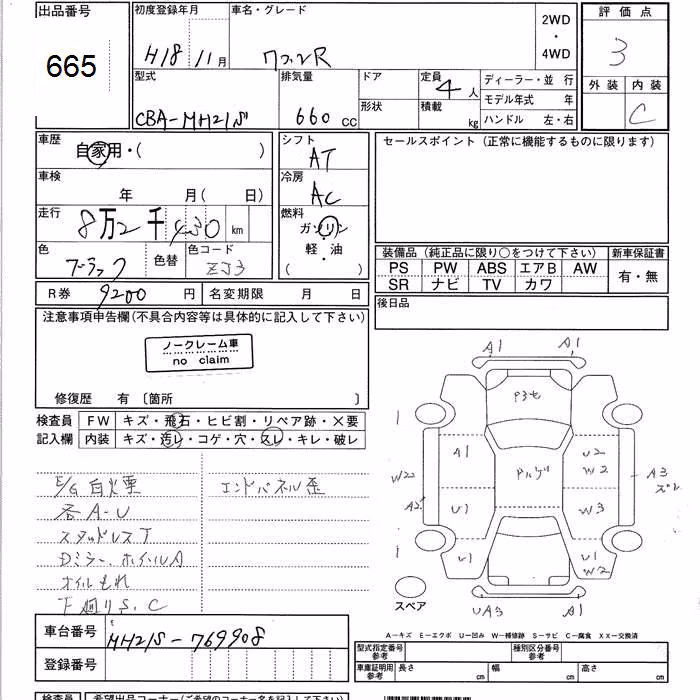 出品番号
665
初度登録年月
H18 11月
車名・グレード
ワゴンR
2WD
・
4WD
評価点
3
外装 内装
C
型式
CBA-MH21S
排気量
660 cc
ドア
形状
定員
4人
積載
kg
ディーラー・並行
モデル年式 年
ハンドル 左・右
車歴
自家用・( )
シフト
AT
セールスポイント(正常に機能するものに限ります)
車検
年 月( 日)
冷房
AC
走行
8万2千430 km
燃料
ガソリン
軽・油
( )
色
ブラック
色替
色コード
ZJ3
装備品(純正品に限り○をつけて下さい)
新車保証書
PS PW ABS エアB AW
SR ナビ TV カワ
有・無
R券 9200円
名変期限 月 日
後日品
注意事項申告欄(不具合内容等は具体的に記入して下さい)
ノークレーム車
no claim
修復歴 有〔箇所 〕
検査員
記入欄
FW キズ・飛石・ヒビ割・リペア跡・×要
内装 キズ・汚レ・コゲ・穴・スレ・キレ・破レ
E/G白火要
各A-U
スタッドレスT
Dミラー、ホイルA
オイルもれ
下廻りS、C
エンドパネル歪
A1
A1
P3セ
A1
U2
W2
Pハゲ
W2
A2
U1
W3
A3
ズレ
U1
U1
W2
スペア
UA3
A1
A-キズ E-エクボ U-凹み W-補修跡 S-サビ C-腐食 XX-交換済
車台番号
MH21S-769908
登録番号
型式指定番号
参考
種別区分番号
参考
車庫証明用
参考
長さ cm
幅 cm
高さ cm
検査員
希望出品コーナー(ご希望のコーナー名を記入して下さい)